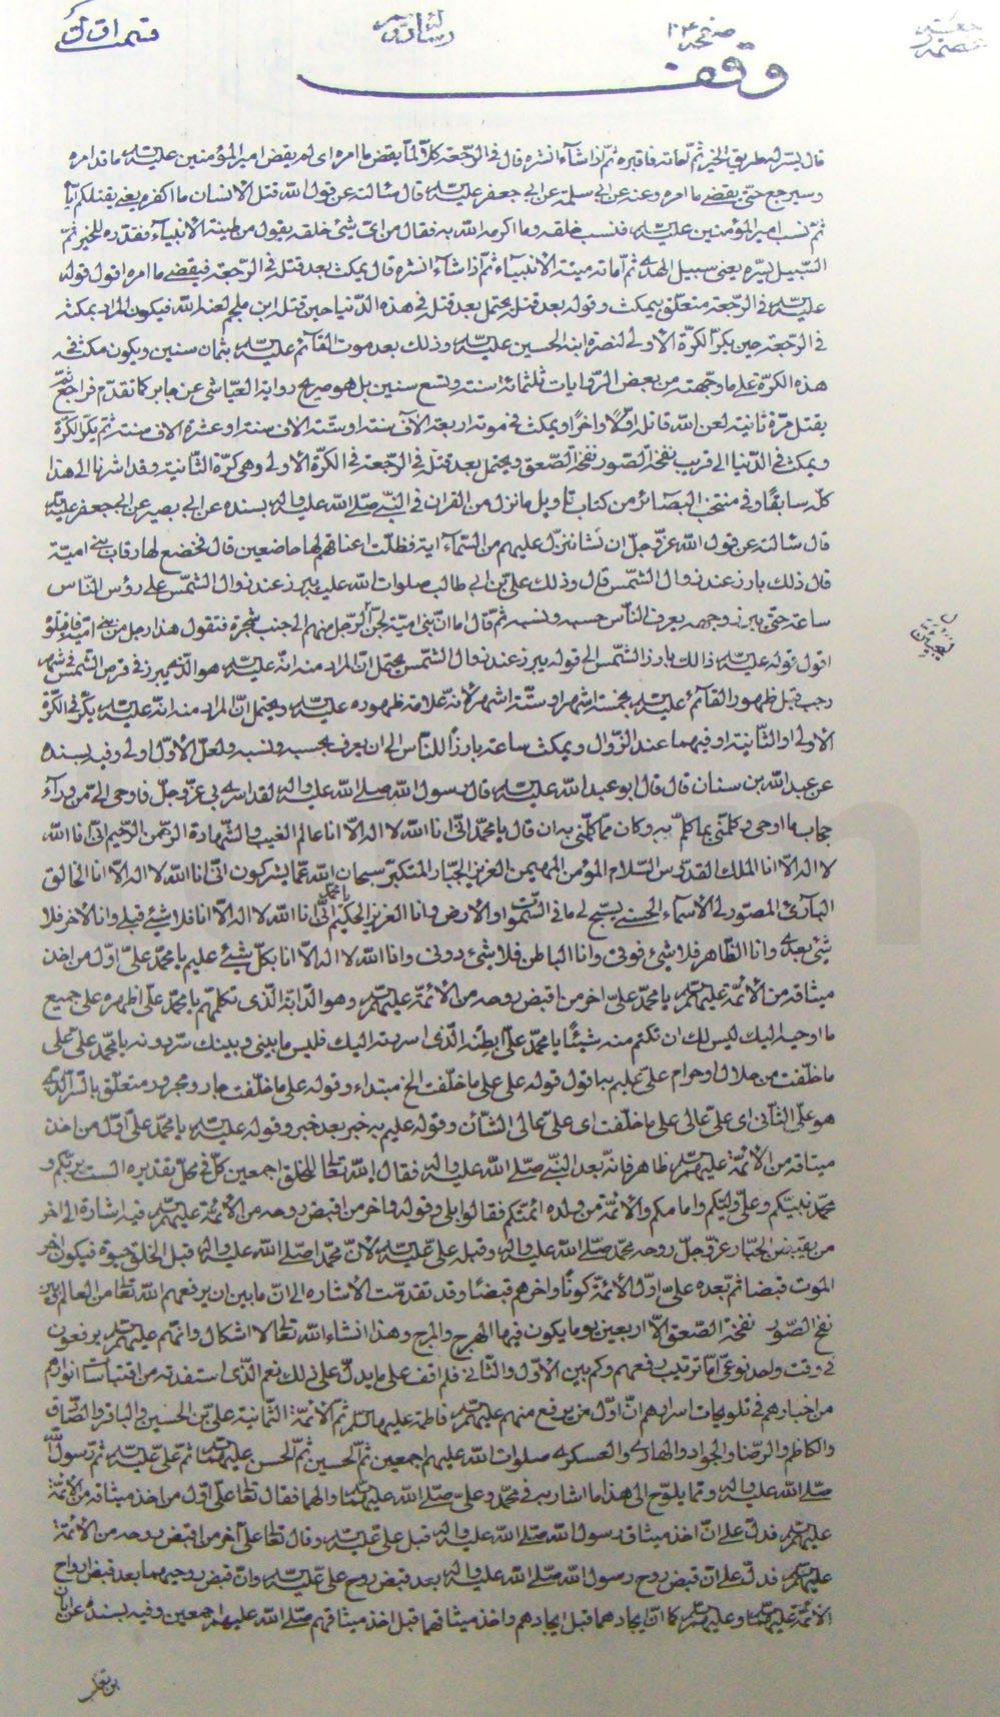 وقف
قال يسّر له طريق الخير ثمّ اماته فاقبره ثمّ اذا شاء انشره قال في الرّجعة كلّا لمّا يقض ما امره اى لم يقض امير المؤمنين عليه السلام ما قد امره
وسيرجع حتّى يقضى ما امره وعنه عن ابى سلمة عن ابى جعفر عليه السلام قال سألته عن قول الله قتل الانسان ما اكفره يعنى بقتلكم ايّا
ثمّ نسب امير المؤمنين عليه السلام فنسب خلقه وما اكرمه الله به فقال من اىّ شئ خلقه يقول من طينة الانبياء فقدّره للخير ثمّ
السّبيل يسّره يعنى سبيل الهدى ثمّ اماته ميتة الانبياء ثمّ اذا شاء انشره قال يمكث بعد قتله فى الرّجعة فيقضى ما امره اقول قوله
عليه السلام فى الرّجعة متعلّق بيمكث وقوله بعد قتله يحتمل بعد قتله فى هذه الدّنيا حين قتله ابن ملجم لعنه الله فيكون المراد يمكثه
فى الرّجعة حين يكرّ الكرّة الاولى لنصرة ابنه الحسين عليه السلام وذلك بعد موت القائم عليه السلام بثمان سنين ويكون مكثه فى
هذه الكرّة على ما وجّهته من بعض الرّوايات ثلثمائة سنة وتسع سنين بل هو صريح رواية العيّاشى عن جابر كما تقدّم فراجع ثمّ
يقتل مرّة ثانية لعن الله قاتله اوّلا واخرا ويمكث فى موته اربعة الاف سنة او ستّة الاف سنة او عشرة الاف سنة ثمّ يكرّ الكرّة
ويمكث فى الدّنيا الى قريب نفخة الصّور نفخة الصّعق ويحتمل بعد قتله فى الرّجعة فى الكرّة الاولى وهى كرّة الثّانية وقد اشرنا الى هذا
كلّه سابقا وفى منتخب البصائر من كتاب تأويل ما نزل من القران فى النّبى صلّى الله عليه واله بسنده عن ابى بصير عن ابى جعفر عليه السلام
قال سألته عن قول الله عزّ وجلّ ان نشأ ننزّل عليهم من السّماء اية فظلّت اعناقهم لها خاضعين قال تخضع لها رقاب بنى اميّة
قال ذلك بارز عند زوال الشّمس قال وذلك علىّ بن ابى طالب صلوات الله عليه يبرز عند زوال الشّمس على رؤس النّاس
ساعة حتّى يبرز وجهه يعرف النّاس حسبه ونسبه ثمّ قال اما انّ بنى اميّة ليخبأنّ الرّجل منهم الى جنب شجرة فتقول هذا رجل من بنى اميّة فاقتلوه
اقول قوله عليه السلام ذلك بارز الشّمس الى قوله يبرز عند زوال الشّمس يحتمل انّ المراد منه انّه عليه السلام هو الّذى يبرز فى قرص الشّمس فى شهر
رجب قبل ظهور القائم عليه السلام بخمسة اشهر او ستّة اشهر لانّه علامة ظهوره عليه السلام ويحتمل انّ المراد منه انّه عليه السلام يكرّ فى الكرّة
الاولى او الثّانية او فيهما عند الزّوال ويمكث ساعة بارزا للنّاس الى ان يعرف بحسبه ونسبه ولعلّ الاوّل اولى وفيه بسنده
عن عبد الله بن سنان قال قال ابو عبد الله عليه السلام قال رسول الله صلى الله عليه واله لقد اسرى بى عزّ وجلّ فاوحى الىّ من وراء
حجاب ما اوحى وكلّمنى بما كلّم به وكان ممّا كلّمنى به ان قال يا محمّد انّى انا الله لا اله الّا انا عالم الغيب والشّهادة الرّحمن الرّحيم انّى انا الله
لا اله الّا انا الملك القدّوس السّلام المؤمن المهيمن العزيز الجبّار المتكبّر سبحان الله عمّا يشركون انّى انا الله لا اله الّا انا الخالق
البارئ المصوّر لى الاسماء الحسنى يسبّح لى ما فى السّموات والارض وانا العزيز الحكيم يا محمّد انّى انا الله لا اله الّا انا فلا شئ قبلى وانا الاخر فلا
شئ بعدى وانا الظّاهر فلا شئ فوقى وانا الباطن فلا شئ دونى وانا الله لا اله الّا انا بكلّ شئ عليم يا محمّد علىّ اوّل من اخذ
ميثاقه من الائمّة عليهم السلام يا محمّد علىّ اخر من اقبض روحه من الائمّة عليهم السلام وهو الدّابة الّذى تكلّمهم يا محمّد علىّ اظهره على جميع
ما اوحيه اليك ليس لك ان تكتم منه شيئا يا محمّد علىّ ابطنه الّذى اسررته اليك فليس ما بينى وبينك سرّ دونه يا محمّد علىّ علىّ
ما خلّفت من حلال او حرام علىّ عليم به اقول قوله علىّ على ما خلّفت الخ مبتداء وقوله على ما خلّفت جار ومجرور متعلّق بالسرّ الّذى
هو علىّ الثّانى اى علىّ عالى على ما خلّفت اى علىّ عالى الشّأن وقوله عليم به خبر بعد خبر وقوله عليه السلام يا محمّد علىّ اوّل من اخذ
ميثاقه من الائمّة عليهم السلام ظاهر فانّه بعد النّبى صلّى الله عليه واله فقال الله تعالى للخلق اجمعين كلّ فى محلّ تقديره الست بربّكم و
محمّد نبيّكم وعلىّ وليّكم وامامكم والائمّة من ولده ائمّتكم فقالوا بلى وقوله واخر من اقبض روحه من الائمّة عليهم السلام فيه اشارة الى اخر
من يقبض الجبّار عزّ وجلّ روحه محمّد صلّى الله عليه واله وقبله علىّ عليه السلام لانّ محمّدا صلّى الله عليه واله قبل الخلق حيوة فيكون اخر
الموت قبضا ثمّ بعده علىّ اوّل الائمّة كونا واخرهم قبضا وقد تقدّمت الاشارة الى انّ ما بين ان يرفعهم الله تعالى من العالم وبين
نفخ الصّور نفخة الصّعق الّا اربعين يوما يكون فيها الهرج والمرج وهذا انشاء الله تعالى لا اشكال وانّهم عليهم السلام يرفعون
فى وقت واحد نوعىّ امّا ترتيب رفعهم وكم بين الاوّل والثّانى فلم اقف على ما يدلّ على ذلك نعم الّذى استفدته من اقتباسات انوارهم
من اخبارهم فى تلويحات اسرارهم انّ اوّل من يرفع منهم عليهم السلام فاطمة عليها السلام ثمّ الائمّة الثّمانية علىّ بن الحسين والباقر والصّادق
والكاظم والرّضا والجواد والهادى والعسكرى صلوات الله عليهم اجمعين ثمّ الحسين ثمّ الحسن عليهما السلام ثمّ علىّ عليه السلام ثمّ رسول الله
صلّى الله عليه واله وممّا يلوّح الى هذا ما اشار به فى محمّد وعلىّ صلّى الله عليهما والهما فقال تعالى علىّ اوّل من اخذ ميثاقه من الائمّة
عليهم السلام فدلّ على انّ اخذ ميثاق رسول الله صلّى الله عليه واله قبل علىّ عليه السلام وقال تعالى علىّ آخر من اقبض روحه من الائمّة
عليهم السلام فدلّ على انّ قبض روح رسول الله صلّى الله عليه واله بعد قبض روح علىّ عليه السلام وانّ قبض روحيهما بعد قبض ارواح
الائمّة عليهما وعليهم السلام كما انّ ايجادهما قبل ايجادهم واخذ ميثاقهما قبل اخذ ميثاقهم صلّى الله عليهم اجمعين وفيه بسنده عن ابان
بن تغلب